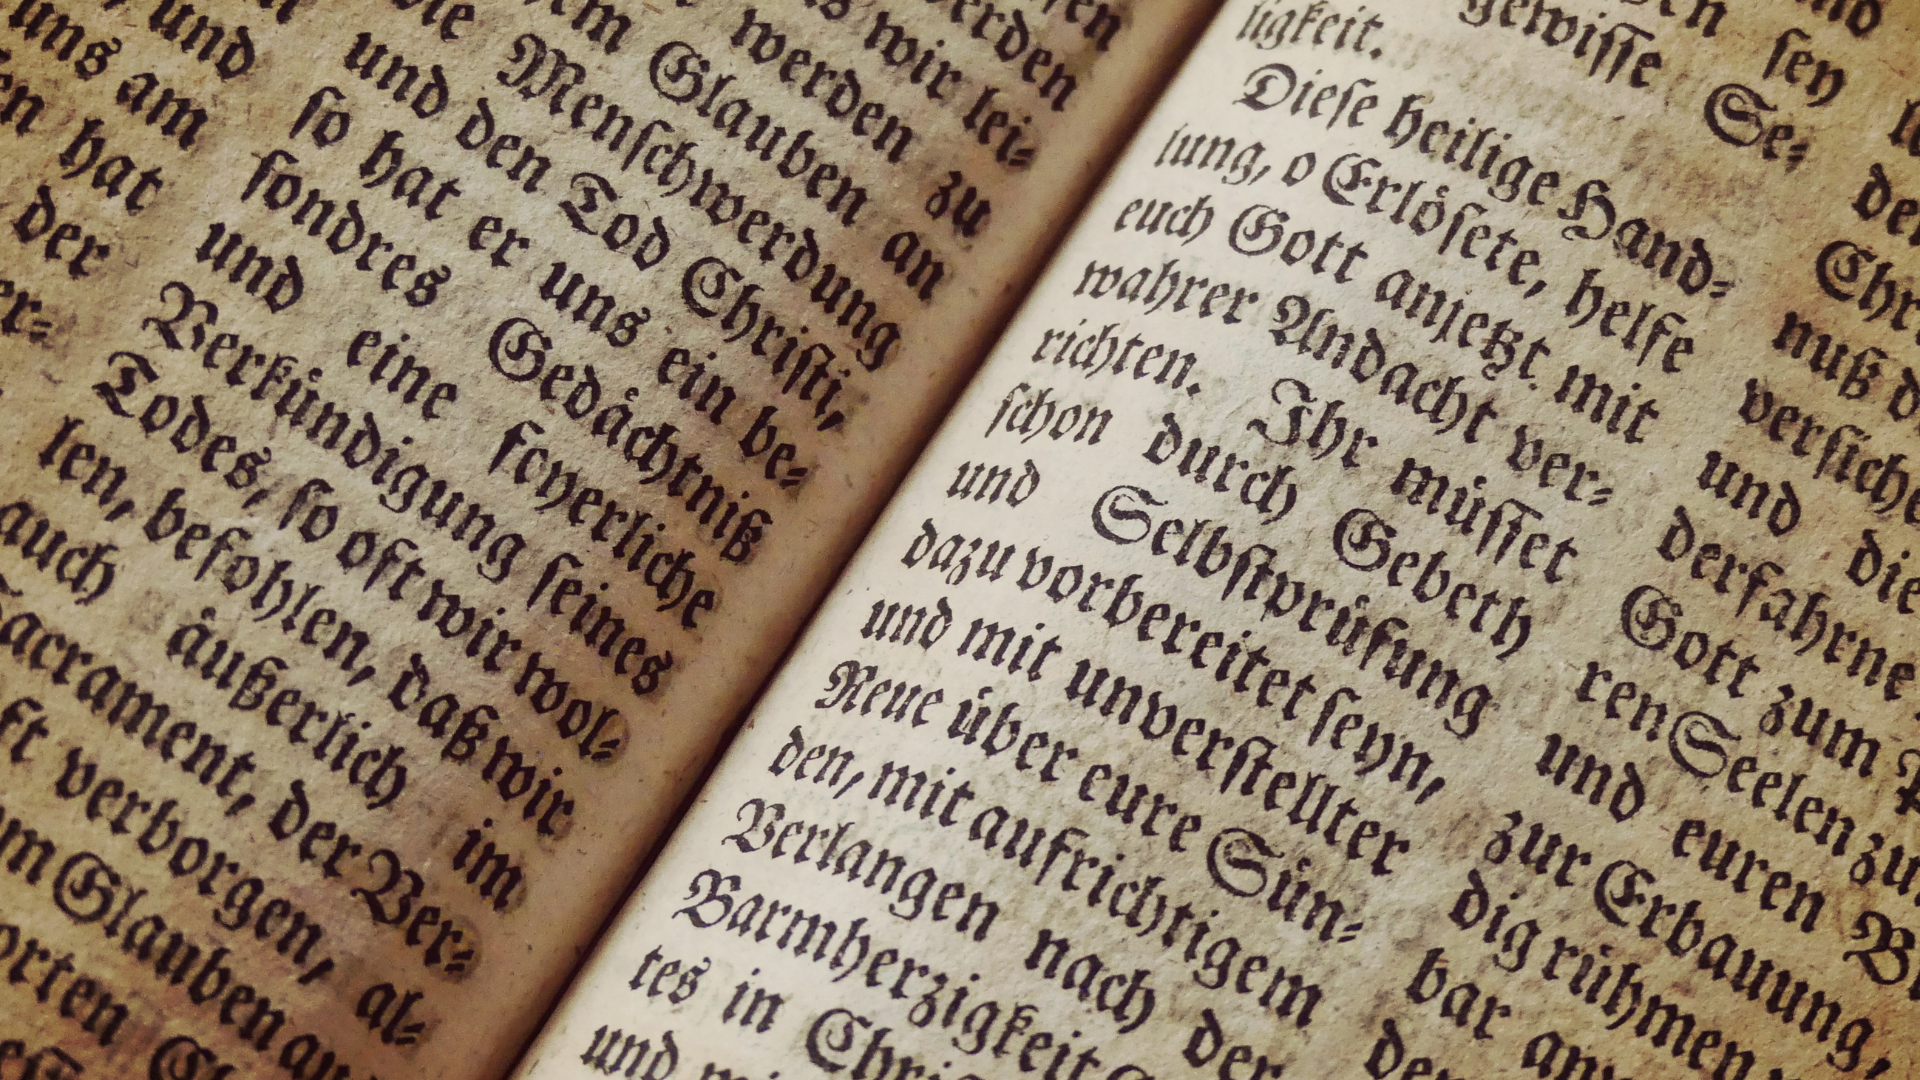 und
uns am
hat
der
werden
wir lei=
werden zu
Glauben an
die Menschwerdung
und den Tod Christi,
so hat er uns ein be=
sondres Gedächtniß
und eine feyerliche
Verkündigung seines
Todes, so oft wir wol=
len, befohlen, daß wir
auch äußerlich im
Sacrament, der Ver=
verborgen, al=
Glauben an
gewisse Se=
ligkeit.
Diese heilige Hand=
lung, o Erlösete, helfe
euch Gott anjetzt mit
wahrer Andacht ver=
richten. Ihr müsset
schon durch Gebeth
und Selbstprüfung
dazu vorbereitet seyn,
und mit unverstellter
Reue über eure Sün=
den, mit aufrichtigem
Verlangen nach der
Barmherzigkeit
tes in
und
sey
nuß
und die
derfahrne
Gott zum
ren Seelen zu
und euren
zur Erbauung,
dig rühmen
bar